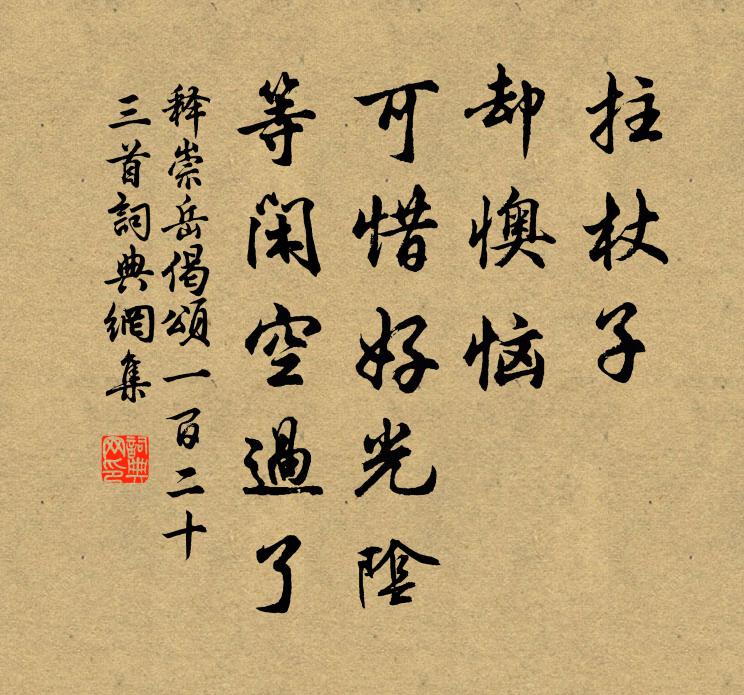 拄杖子
却懊恼
可惜好光陰
等闲空過了
释崇岳偈頌一百二十
三首詞典網集
詞典
网印